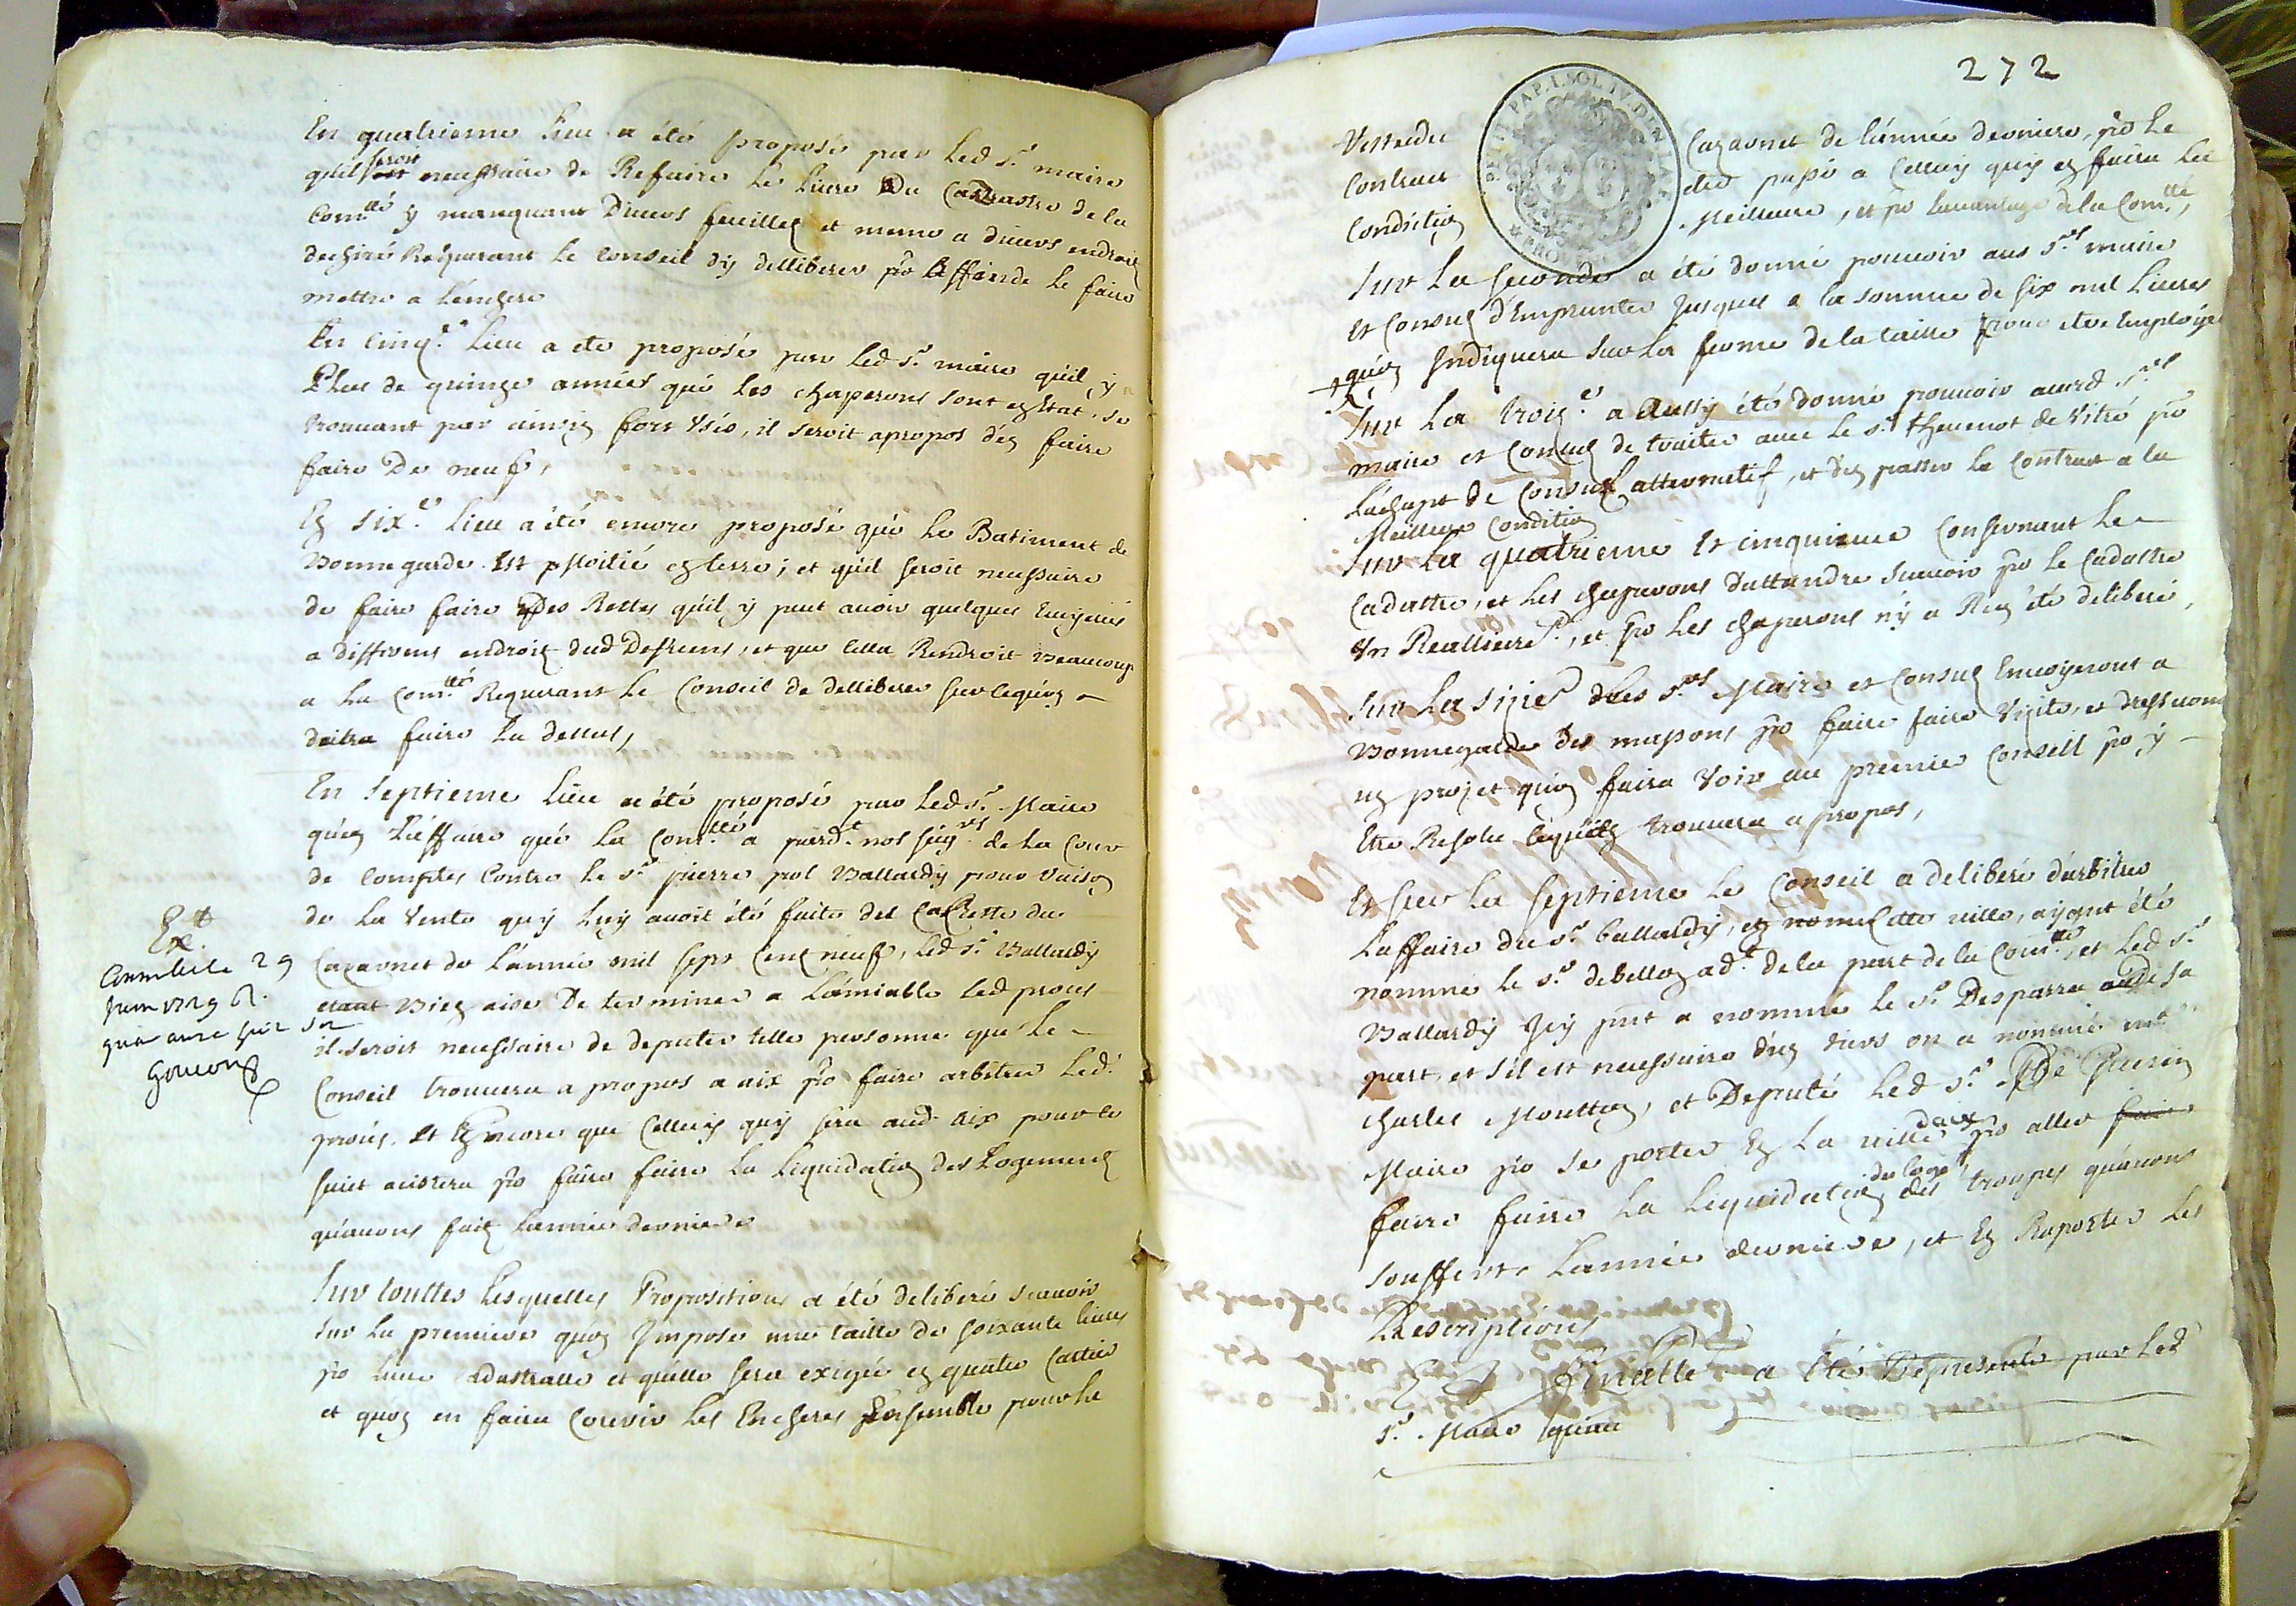 En quatrieme lieu a été proposé par led sr maire
qu'il seroit neussaire de Refaire le livre Du Cadrastre de la
Comtté y manquant Divers feuilles et meme a divers endroits
dechiré Requerant le Conseil d'y delliberer po affin de le faire
mettre a l'enchere
En cinqe lieu a eté proposé par led sr maire qu'il y a
Plus de quinze années qué les chaperons sont en Etat, se
trouvant par ainsin fort Usés, il seroit apropos d'en faire
faire De neufs,
En sixe lieu a été encore proposé qué le Batiment de
Bonnegarde Est p moitié en terre; et qu'il seroit neussaire
de faire faire Des Rettes qu'il y peut avoir quelques
a differens endroits dud Defriens, et que cella Rendroit Beaucoup
a la Comtté Requerant le Conseil de delliberer sur cequ'on
devra faire la dessus,
En Septieme lieu a été proposé par led sr Maire
qu'en l'affaire qué la Comtté a pard.t nos seigrs de la Cour
de Comptes Contre le sr pierre pol Ballardy pour raison
de la Vente quy luy avoit été faite des du
Cazarnet de l'année mil sept Cent neuf, led sr Ballardy
etant Bien aise De terminer a l'amiable led proces
il seroit neussaire de deputer telle personne que le
Conseil trouvera a propos a aix po faire arbitrer led.
procés. Et Encore que Celluy quy sera aud aix pour le
sujet avisera po faire faire la liquidation des Logemens
qu'avons fait l'année derniere
Ext
29
Juin 1719
Sur touttes lesquelles Propositions a été deliberé scavoir
sur la premiere qu'on Impose une taille de soixante livres
po livre cadastralle et qu'elle sera exigée en quatre Cartier
et quon en faira Courir les Encheres Ensemble pour le
272
PETIT PAP. 1. SOL IV. DEN. LA F.
Veste du Cazarnet de l'année derniere, po le
Contract etre passé a Celluy quy en faira la
Condition Meilleure, et po lavantage de la Comtté,
Sur La seconde a été donné pouvoir aus srs maire
et Consuls d'Emprunter Jusques a la somme de six mil livres
qu'on Indiquera sur la ferme de la taille pour etre Employé
Sur La troise a aussy été donné pouvoir ausd srs
maire et Consuls de traiter avec le sr thevenot de Vitré po
lachapt de Consul alternatif, et d'en passer le Contract a la
Meilleure Condition
Sur La quatrieme Et cinquieme Consernant le
Cadattre, et les chaperons d'attandre scavoir po le Cadattre
Un , et po les chaperons n'y a Rien été deliberé,
Sur La sixe les srs Maire et Consuls Envoyeront a
Bonnegarde des massons po faire faire Visite, et dresseront
un projet qu'on faira voir au premier Conseil po y
Etre Resolu cequ'on trouvera a propos,
Et sur la septieme le Conseil a deliberé d'arbitrer
Laffaire du sr ballardy, en nome Cette ville, ayant été
nommé le sr debellon adt de la part de la Comtté, et led sr
Ballardy Icy pnt a nommé le sr Desparra de sa
part, et s'il est neussaire d'un tiers on a nommé mt
Charles Moutton, et Deputé led sr De Guerin
Maire po se porter En La ville d'aix po aller faire
faire faire la liquidation du loget des troupes qu'avons
souffert Lannée derniere, et En Raporter les
Descriptions
Finalle a été Represanté par led
sr Maire quau